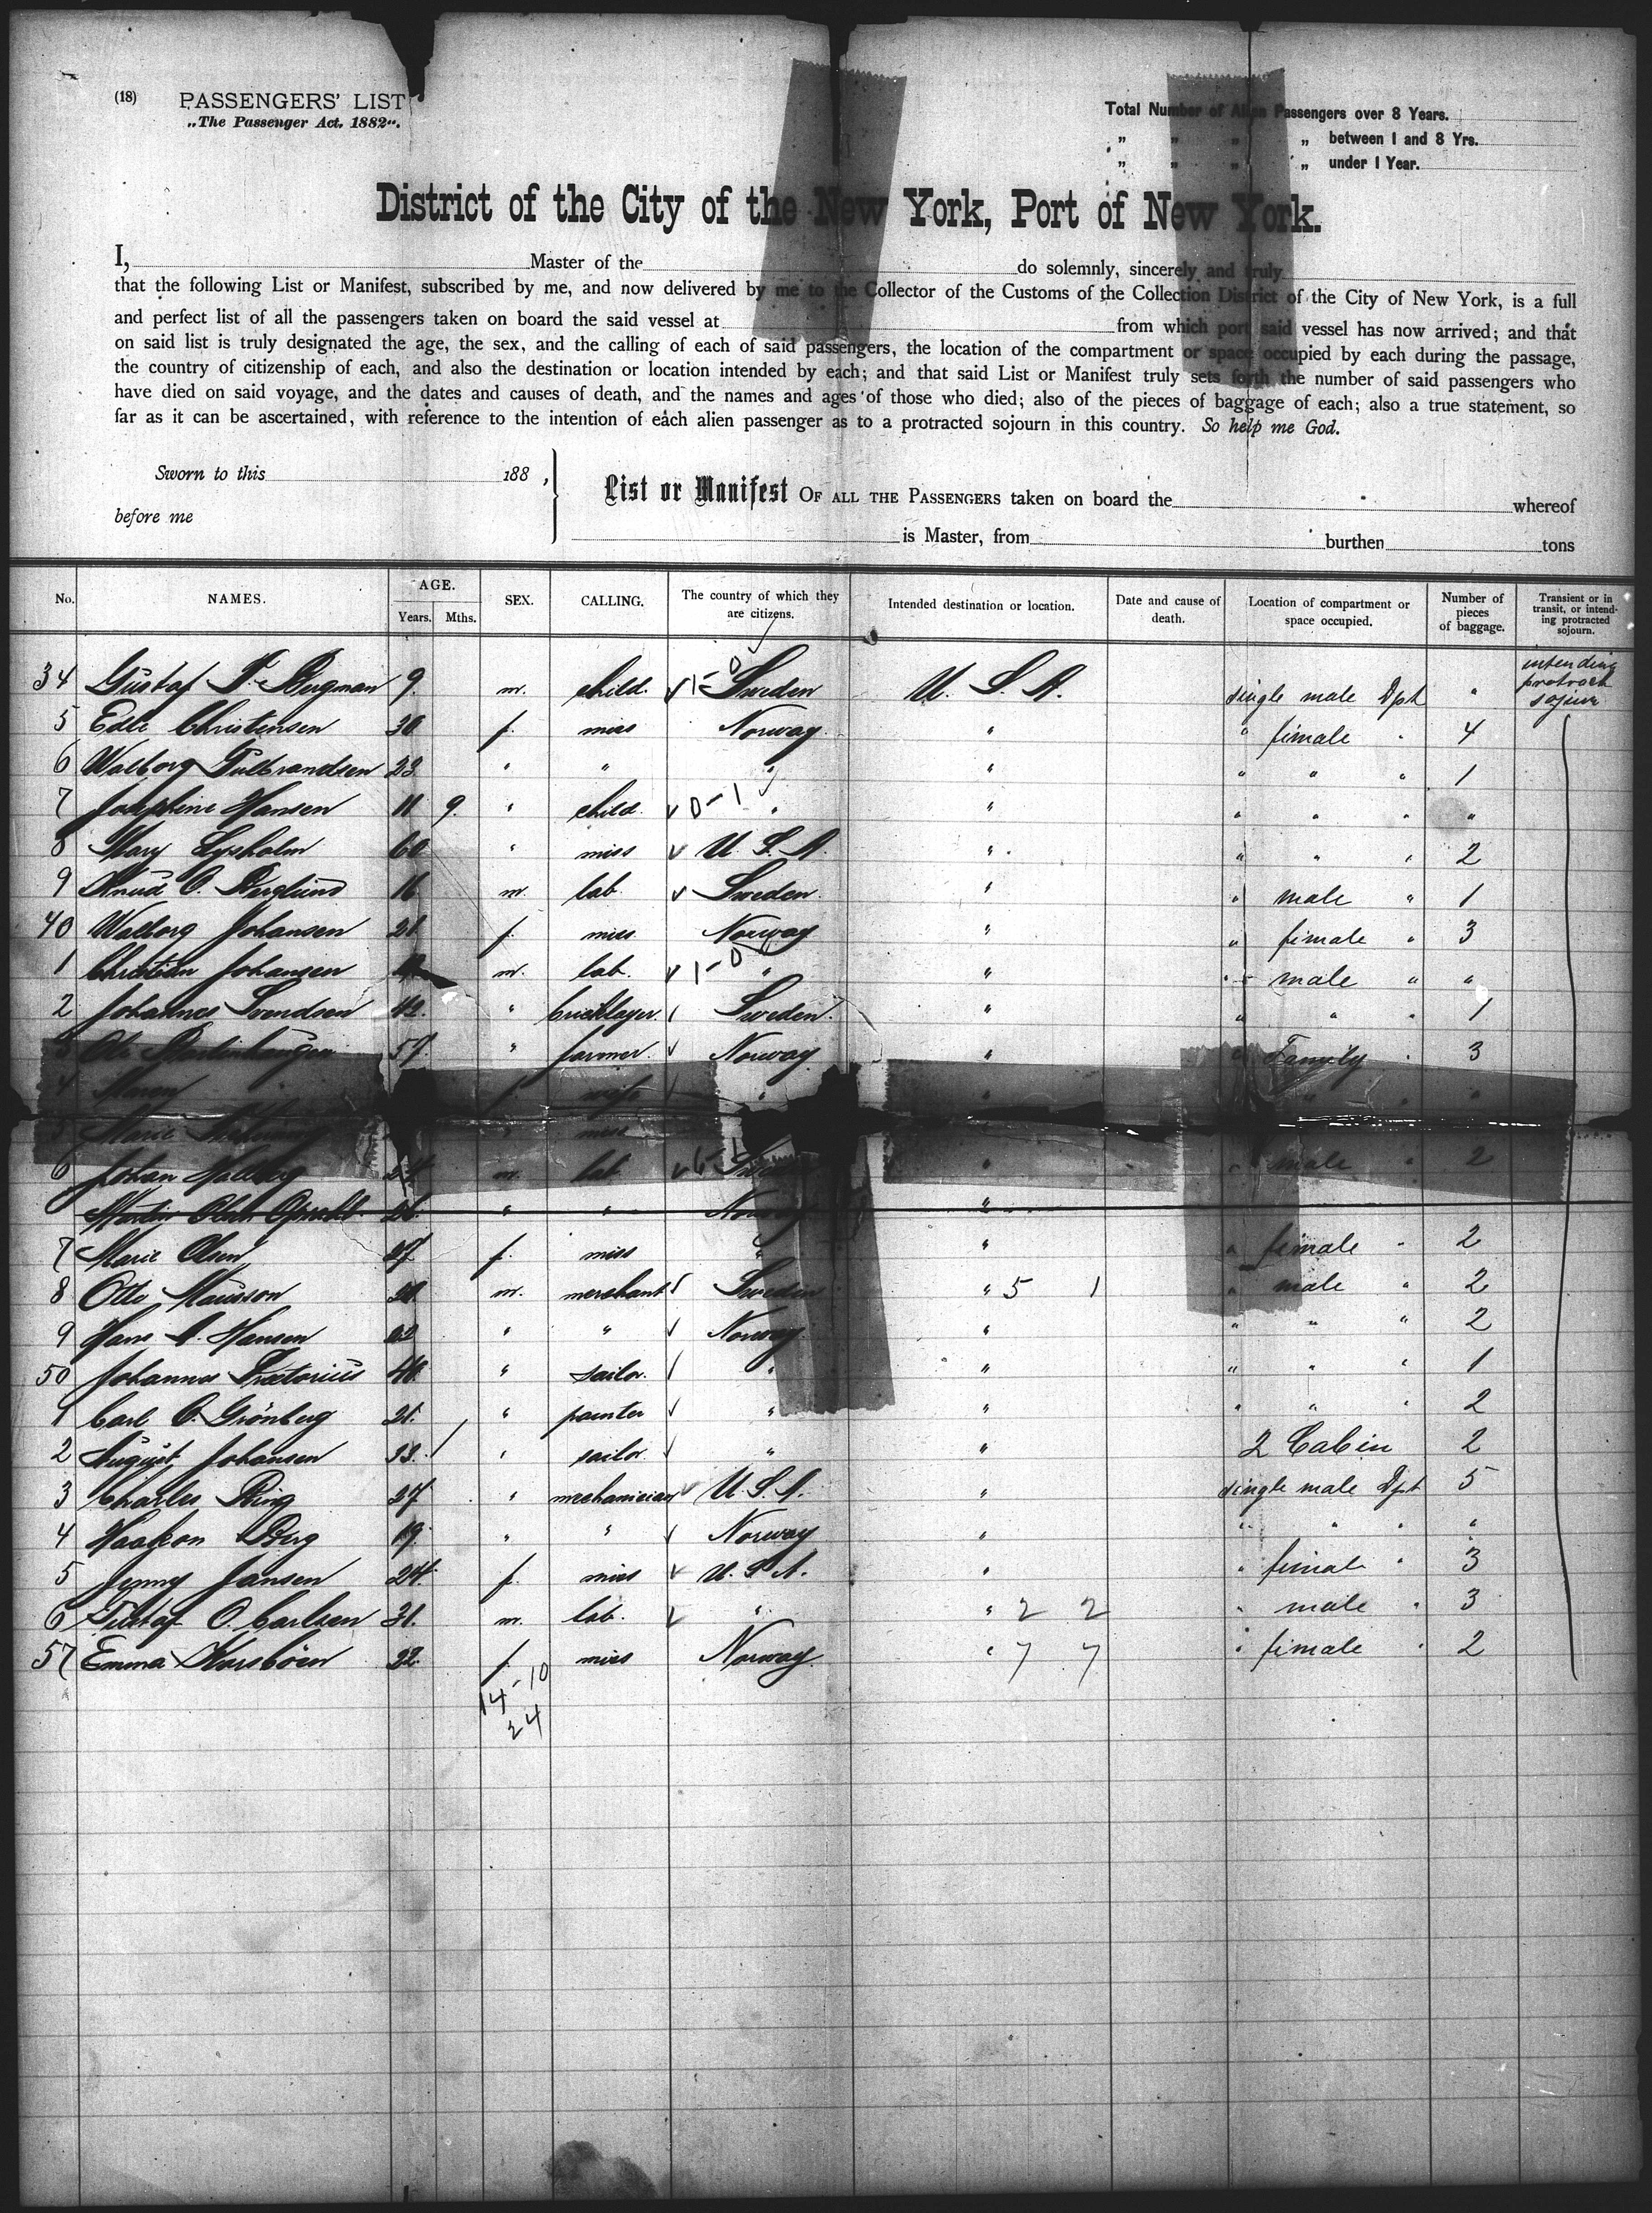 (18) PASSENGERS' LIST
„The Passenger Act, 1882“.
Total Number of Alien Passengers over 8 Years.
„ „ „ „ between 1 and 8 Yrs.
„ „ „ „ under 1 Year.
District of the City of the New York, Port of New York.
I, Master of the do solemnly, sincerely and truly
that the following List or Manifest, subscribed by me, and now delivered by me to the Collector of the Customs of the Collection District of the City of New York, is a full
and perfect list of all the passengers taken on board the said vessel at from which port said vessel has now arrived; and that
on said list is truly designated the age, the sex, and the calling of each of said passengers, the location of the compartment or space occupied by each during the passage,
the country of citizenship of each, and also the destination or location intended by each; and that said List or Manifest truly sets forth the number of said passengers who
have died on said voyage, and the dates and causes of death, and the names and ages of those who died; also of the pieces of baggage of each; also a true statement, so
far as it can be ascertained, with reference to the intention of each alien passenger as to a protracted sojourn in this country. So help me God.
Sworn to this 188 ,
before me
List or Manifest OF ALL THE PASSENGERS taken on board the whereof
is Master, from burthen tons
No. NAMES. AGE. Years. Mths. SEX. CALLING. The country of which they are citizens. Intended destination or location. Date and cause of death. Location of compartment or space occupied. Number of pieces of baggage. Transient or in transit, or intending protracted sojourn.
34 Gustaf F. Bergman 9. m. child. 1-0 Sweden U. S. A. single male Dpt " intending protract sojour
5 Edle Christensen 30 f. miss Norway " " female " 4
6 Walborg Gulbrandsen 23 " " " " " " " 1
7 Josephine Hansen 11 9. " child 0-1 " " " " " "
8 Mary Lysholm 60 " miss U. S. A. " " " " 2
9 Knud O. Berglund 16 m. lab. Sweden. " " male " 1
40 Walborg Johansen 21 f. miss Norway " " female " 3
1 Christian Johansen m. lab. 1-0 " " " male " "
2 Johannes Svendsen 42. " bricklayer. Sweden. " " " " 1
Ole 57. " farmer. Norway " " Family " 3
4 Maren f. wife " " " " "
5 Marie " miss
6 Johan Hallberg m. lab. Sweden " " male " 2
Martin Olsen " " Norway "
7 Marie Olsen 27 f. miss " " " female " 2
8 Otto Mausson m. merchant Sweden " 5 1 " male " 2
9 Hans A. Hansen " " Norway " " " " 2
50 Johannes Prætorius 40 " sailor. " " " " " 1
1 Carl O. Grönberg 21. " painter " " " " " 2
2 August Johansen 33. " sailor " " 2 Cabin 2
3 Charles Ring 27 " mechanician U. S. A. " single male Dpt 5
4 Haakon Berg 19. " " Norway " " " " "
5 Jenny Jansen 24. f. miss U. S. A. " " female " 3
6 Gustaf O. Carlsen 31. m. lab. " " 2 2 " male " 3
57 Emma 22. f. miss Norway " 7 7 " female " 2
14-10
24